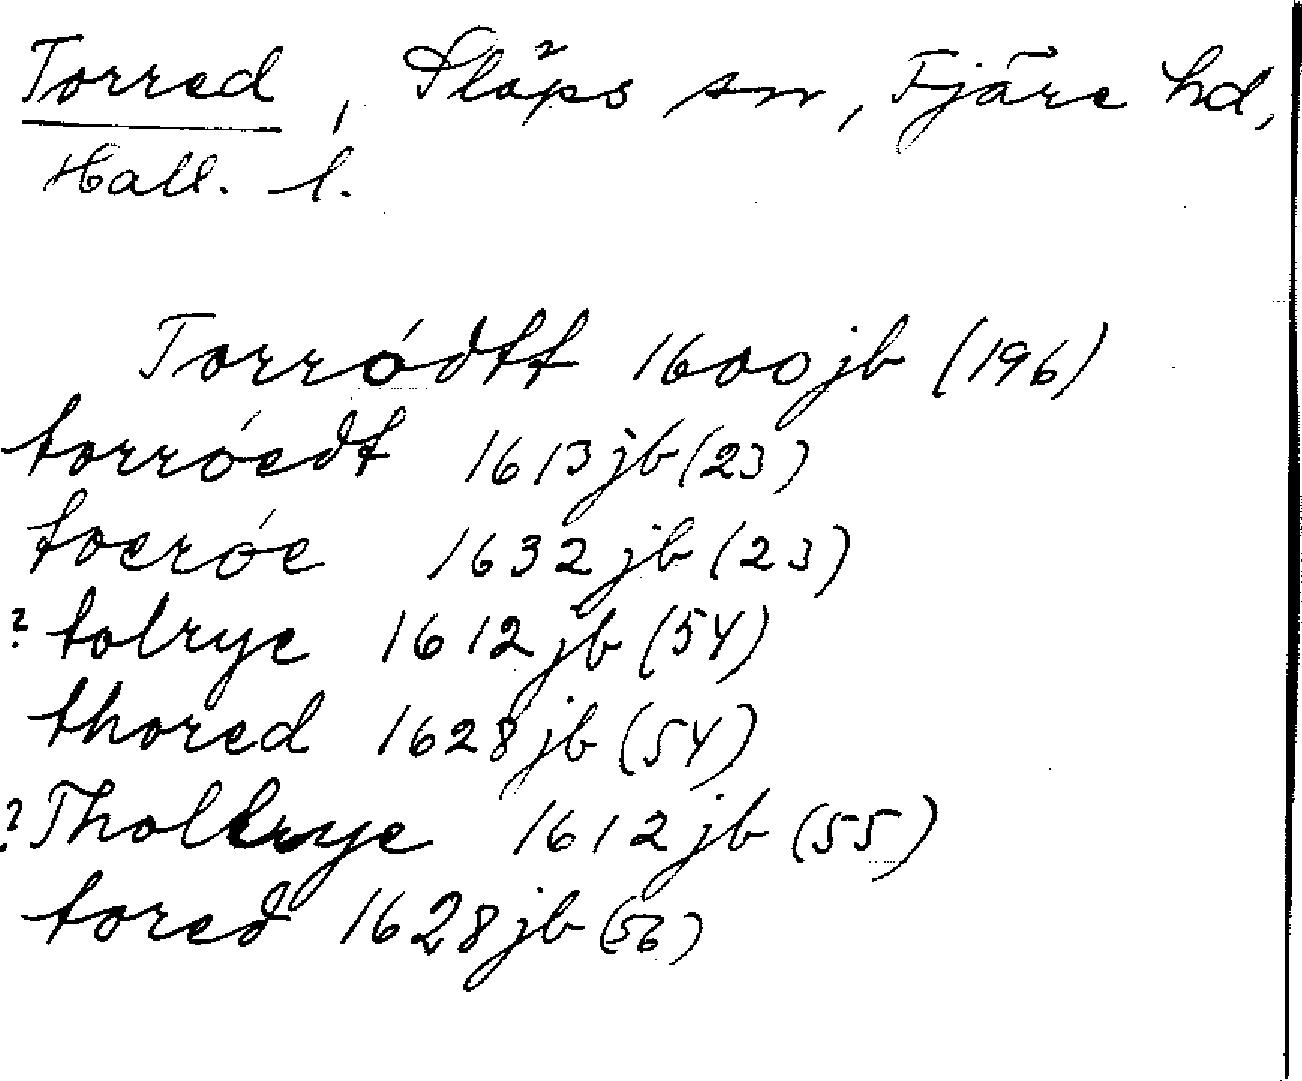 Torred, Släps sn, Fjäre hd,
Hall. l.
Torródtt 1600 jb (196)
torróedt 1613 jb (23)
toeróe 1632 jb (23)
? tolrye 1612 jb (54)
thored 1628 jb (54)
? Tholrye 1612 jb (55)
tored 1628 jb (56)